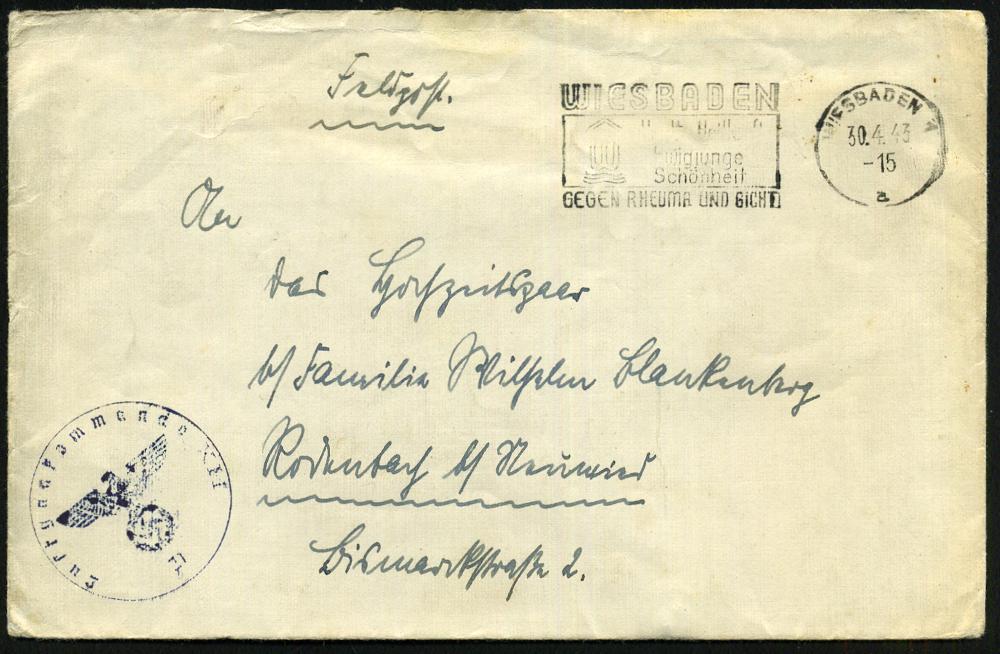 Feldpost.
WIESBADEN
Ewigjunge
Schönheit
GEGEN RHEUMA UND GICHT
WIESBADEN 1
30.4.43
-15
a
An
das Hochzeitspaar
b/ Familie Wilhelm Blankenberg
Rodenbach b/ Neuwied
Bismarckstraße 2.
Luftgaukommando XII